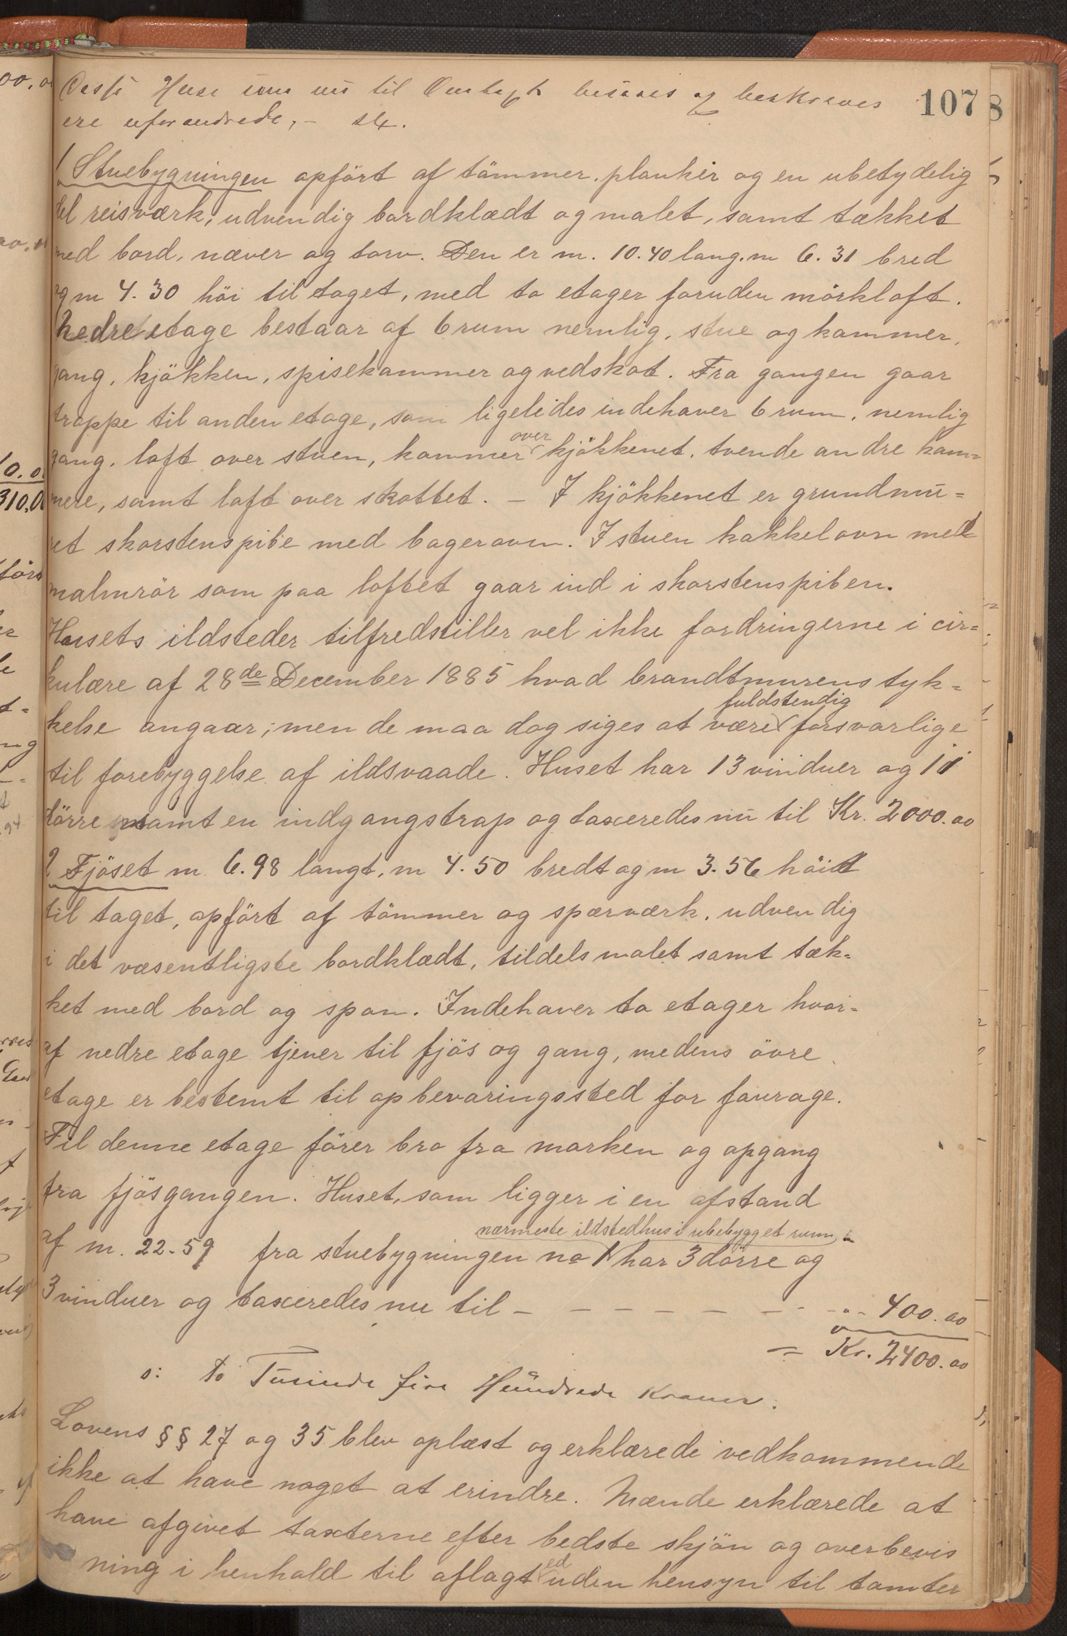 Disse Huse som nu til Omtaxt besaaes og beskrives
107
ere uforandrede, –
1 Stuebygningen opført af tömmer, planker og en ubetydelig
del reisværk, udvendig bordklædt og malet, samt tækket
med bord, næver og torv. Den er m. 10.40 lang, m 6.31 bred
og m 4.30 höi til taget, med to etager foruden mörkloft.
Nedre etage bestaar af 6 rum nemlig, stue og kammer,
gang, kjökken, spisekammer og vedskot. Fra gangen gaar
trappe til anden etage, som ligeledes indehaver 6 rum, nemlig
gang, loft over stuen, kammer over kjökkenet, tvende andre kam=
mere, samt loft over skottet. – I kjökkenet er grundmu=
ret skorstenspibe med bagerovn. I stuen kakkelovn med
malmrör som paa loftet gaar ind i skorstenspiben.
Husets ildsteder tilfredstiller vel ikke fordringerne i cir=
kulære af 28de December 1885 hvad brandtmurens tyk=
kelse angaar; men de maa dog siges at være fuldstendig forsvarlige
til forebyggelse af ildsvaade. Huset har 13 vinduer og 11
dörre samt en indgangstrap og taxeredes nu til Kr. 2000.00
2 Fjöset m 6.98 langt, m 4.50 bredt og m 3.56 höit
til taget, opfört af tömmer og spærværk, udvendig
i det væsentligste bordklædt, tildels malet samt tæk=
ket med bord og spon. Indehaver to etager hvor=
af nedre etage tjener til fjös og gang, medens övre
etage er bestemt til opbevaringssted for fourage.
Til denne etage förer bro fra marken og opgang
fra fjösgangen. Huset, som ligger i en afstand
af m. 22.59 fra stuebygningen no 1 nærmeste ildstedhus i ubebygget rum, har 3 dörre og
3 vinduer og taxeredes nu til – – – – – – – „ 400.00
= Kr. 2400.00
o: to Tusinde fire Hundrede Kroner.
Lovens §§ 27 og 35 blev oplæst og erklærede vedkommende
ikke at have noget at erindre. Mænde erklærede at
have afgivet taxterne efter bedste skjön og overbevis
ning i henhold til aflagt ed uden hensyn til tomter